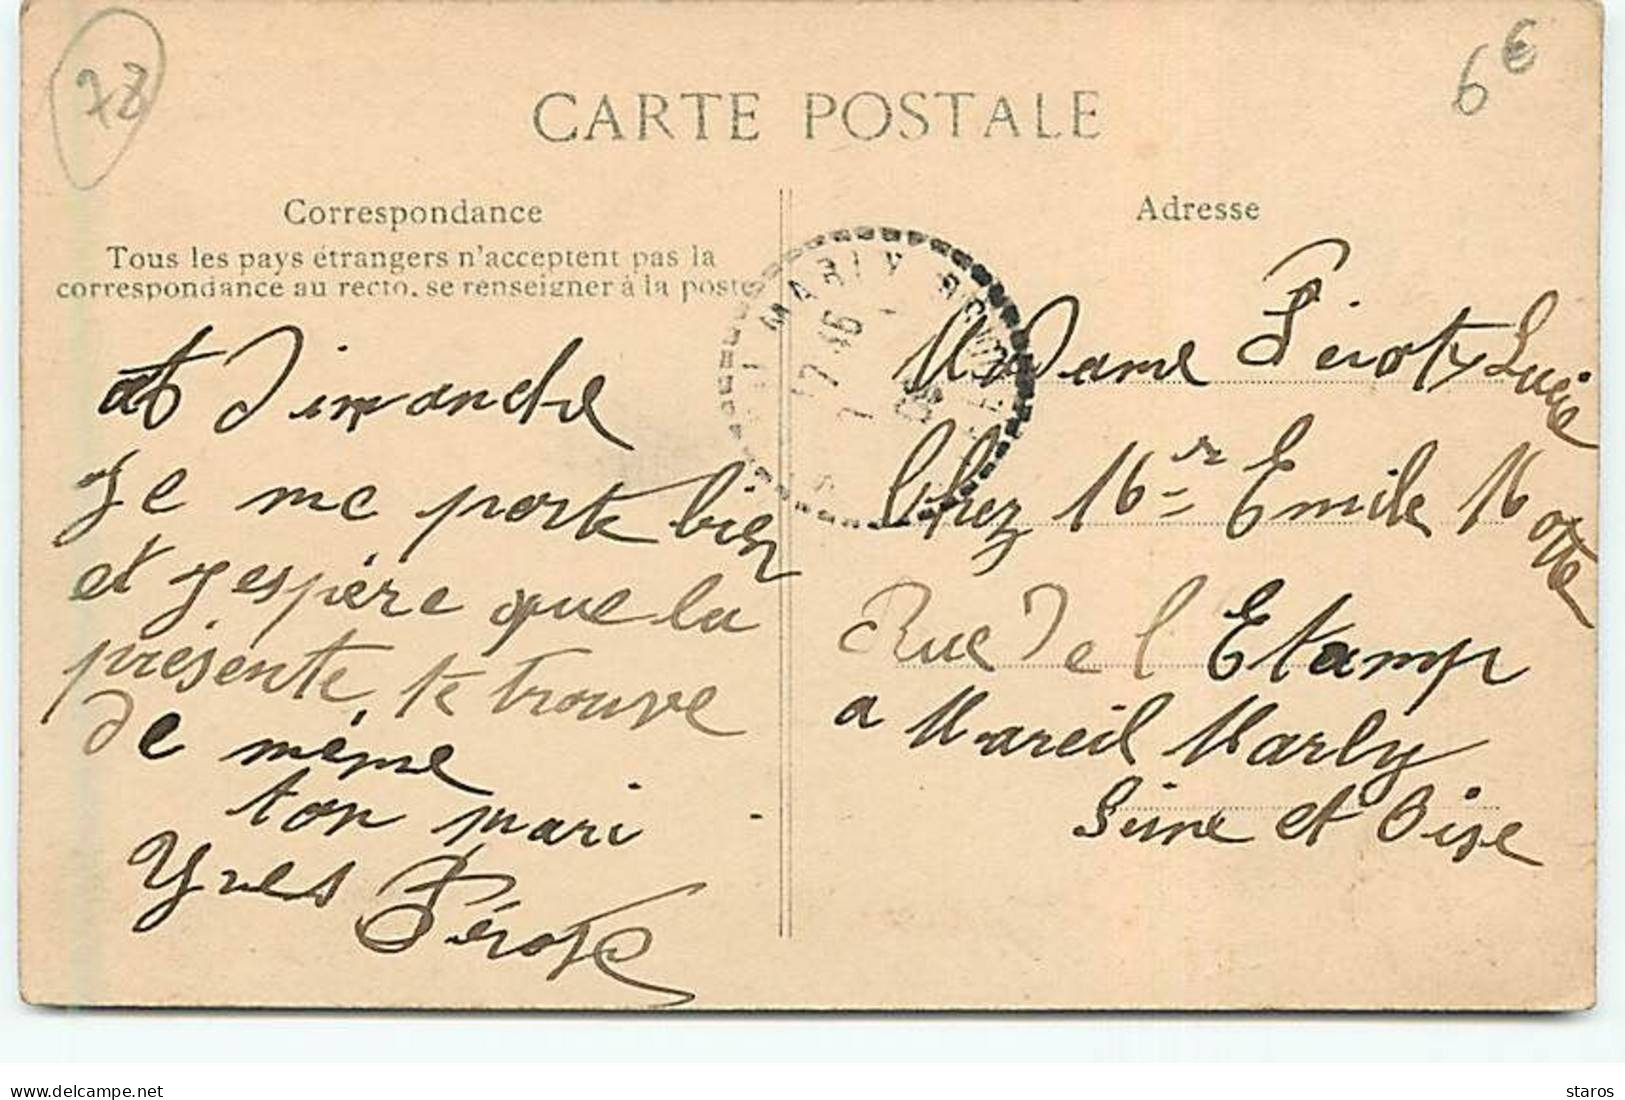 78
6€
CARTE POSTALE
Correspondance
Tous les pays étrangers n'acceptent pas la
correspondance au recto, se renseigner à la poste
a Dimanche
Je me porte bien
et j'espère que la
présente te trouve
de même
ton mari
Yves Pérot
Adresse
Madame Pérot Lucie
Chez Mr Emile Motte
Rue de l'Etamp
a Mareil Marly
Seine et Oise
MARLY
17 36
7
09
delcampe.net
staros